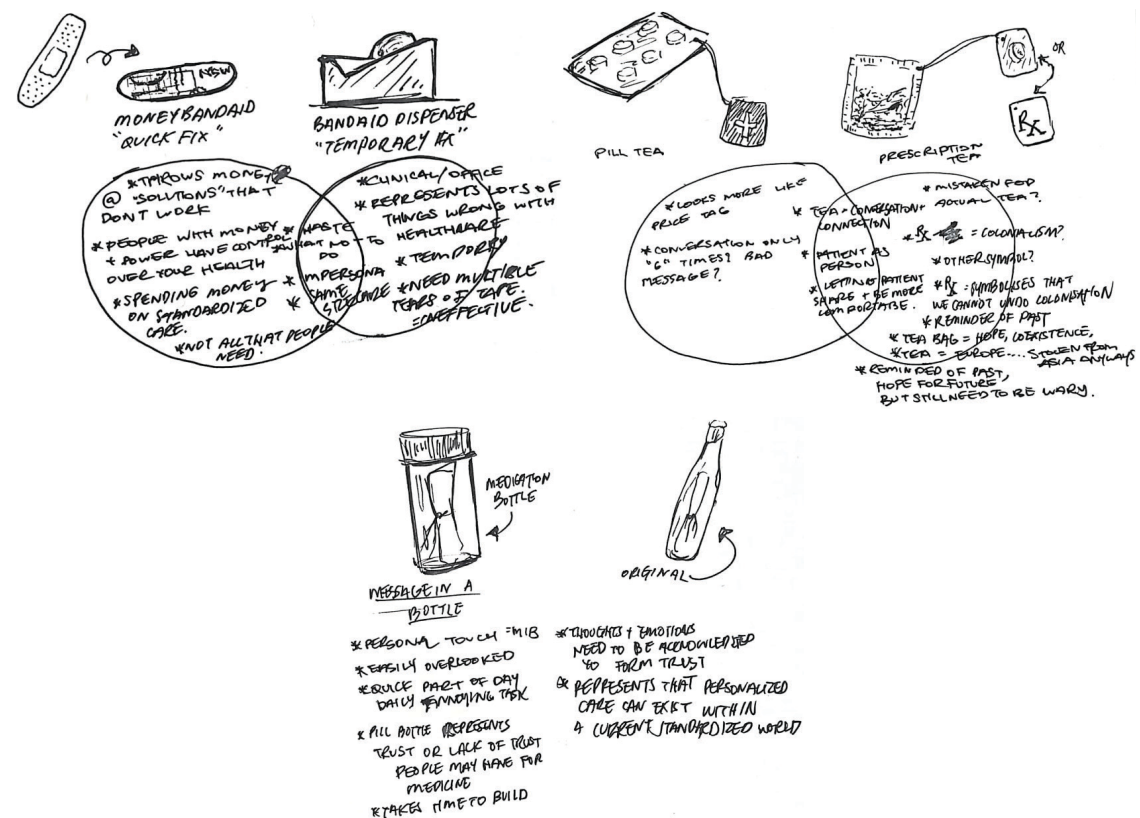 NEW
MONEYBANDAID
"QUICK FIX"
BANDAID DISPENSER
"TEMPORARY FIX"
* THROWS MONEY
@ "SOLUTIONS" THAT
DONT WORK
* PEOPLE WITH MONEY
+ POWER HAVE CONTROL
OVER YOUR HEALTH
* SPENDING MONEY
ON STANDARDIZED
CARE.
* NOT ALL THAT PEOPLE
NEED.
* WASTE
* WHAT NOT TO
DO
* IMPERSONA
* SAME
SIZE CARE
* CLINICAL/OFFICE
* REPRESENTS LOTS OF
THINGS WRONG WITH
HEALTHCARE
* TEMPORRY
* NEED MULTIPLE
TEARS OF TAPE.
= INEFFECTIVE.
PILL TEA
OR
RX
PRESCRIPTION
TEA
* LOOKS MORE LIKE
PRICE TAG
* CONVERSATION ONLY
"6" TIMES? BAD
MESSAGE?
* TEA = CONVERSATION +
CONNECTION
* PATIENT AS
PERSON
* LETTING PATIENT
SHARE + BE MORE
COMFORTABLE.
* MISTAKEN FOR
ACTUAL TEA?
* RX = COLONIALISM?
* OTHER SYMBOL?
* RX = SYMBOLISES THAT
WE CANNOT UNDO COLONISATION
* REMINDER OF PAST
* TEA BAG = HOPE, COEXISTENCE,
* TEA = EUROPE.... STOLEN FROM
ASIA ANYWAYS
* REMINDED OF PAST,
HOPE FOR FUTURE,
BUT STILL NEED TO BE WARY.
MEDICATION
BOTTLE
MESSAGE IN A
BOTTLE
ORIGINAL
* PERSONAL TOUCH = MIB
* EASILY OVERLOOKED
* QUICK PART OF DAY
DAILY ANNOYING TASK
* PILL BOTTLE REPRESENTS
TRUST OR LACK OF TRUST
PEOPLE MAY HAVE FOR
MEDICINE
* TAKES TIME TO BUILD
* THOUGHTS + EMOTIONS
NEED TO BE ACKNOWLEDGED
TO FORM TRUST
* REPRESENTS THAT PERSONALIZED
CARE CAN EXIST WITHIN
A CURRENT STANDARDIZED WORLD